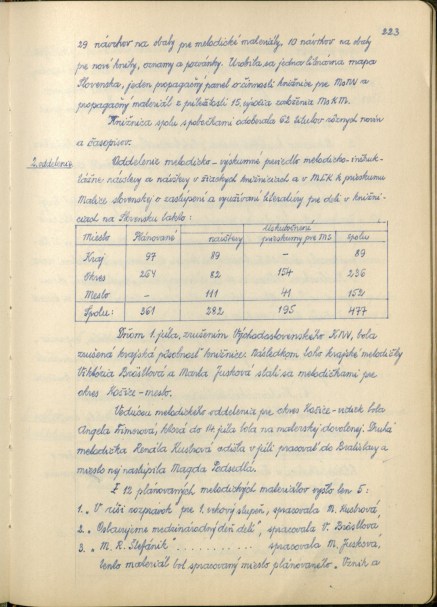 223
29 návrhov na obaly pre metodické materiály, 10 návrhov na obaly
pre nové knihy, oznamy a pozvánky. Urobila sa jedna literárna mapa
Slovenska, jeden propagačný panel o činnosti knižnice pre MsNV a
propagačný materiál z príležitosti 15. výročia založenia MsKM.
Knižnica spolu s pobočkami odoberala 62 titulov rôznych novín
a časopisov.
2. oddelenie
Oddelenie metodicko-výskumné previedlo metodicko-inštruk-
tážne návštevy a návštevy v žiackych knižniciach a v MĽK k prieskumu
Matice slovenskej o zastúpení a využívaní literatúry pre deti v knižni-
ciach na Slovensku takto:
Miesto Plánované Uskutočnené
návštevy prieskumy pre MS Spolu
Kraj 97 89 - 89
Okres 264 82 154 236
Mesto - 111 41 152
Spolu: 361 282 195 477
Dňom 1. júla, zrušením Východoslovenského KNV, bola
zrušená krajská pôsobnosť knižnice. Následkom toho krajské metodičky
Viktória Bröstlová a Marta Jusková stali sa metodičkami pre
okres Košice-mesto.
Vedúcou metodického oddelenia pre okres Košice-vidiek bola
Angela Kimonová, ktorá do 14. júla bola na materskej dovolenej. Druhá
metodička Renáta Kustrová odišla v júli pracovať do Bratislavy a
miesto nej nastúpila Magda Podsedlá.
Z 12 plánovaných metodických materiálov vyšlo len 5:
1. „V ríši rozprávok pre 1. vekový stupeň, spracovala R. Kustrová,
2. „Oslavujeme medzinárodný deň detí", spracovala V. Bröstlová
3. „M. R. Štefánik" .......... spracovala M. Jusková,
tento materiál bol spracovaný miesto plánovaného „Vznik a